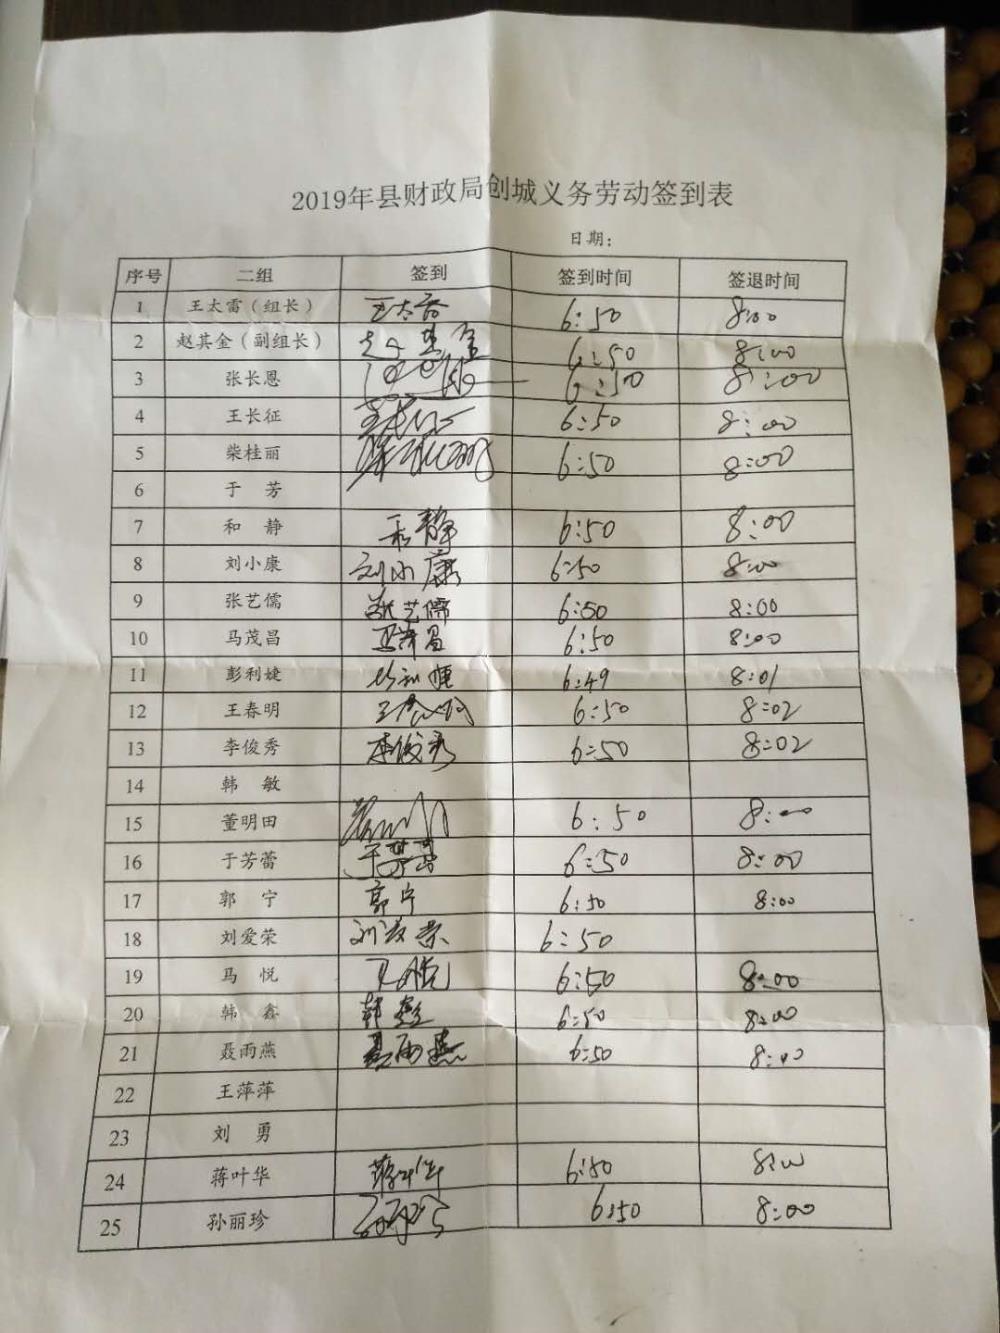 2019年县财政局创城义务劳动签到表
日期：
序号 二组 签到 签到时间 签退时间
1 王太雷（组长） 王太雷 6:50 8:00
2 赵其金（副组长） 赵其金 6:50 8:00
3 张长恩 6:50 8:00
4 王长征 王长征 6:50 8:00
5 柴桂丽 柴桂丽 6:50 8:00
6 于 芳
7 和 静 和静 6:50 8:00
8 刘小康 刘小康 6:50 8:00
9 张艺儒 张艺儒 6:50 8:00
10 马茂昌 马茂昌 6:50 8:00
11 彭利婕 彭利婕 6:49 8:01
12 王春明 王春明 6:50 8:02
13 李俊秀 李俊秀 6:50 8:02
14 韩 敏
15 董明田 6:50 8:00
16 于芳蕾 于芳蕾 6:50 8:00
17 郭 宁 郭宁 6:50 8:00
18 刘爱荣 刘爱荣 6:50
19 马 悦 马悦 6:50 8:00
20 韩 鑫 韩鑫 6:50 8:00
21 聂雨燕 聂雨燕 6:50 8:00
22 王萍萍
23 刘 勇
24 蒋叶华 蒋叶华 6:50 8:00
25 孙丽珍 6:50 8:00